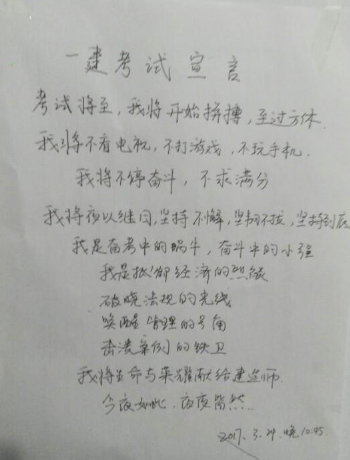 一建考试宣言
考试将至，我将开始拼搏，至过方休.
我将不看电视，不打游戏，不玩手机.
我将不停奋斗，不求满分
我将夜以继日，坚持不懈，坚韧不拉，坚持到底
我是备考中的蜗牛，奋斗中的小强
我是抵御经济的烈焰
破晓法规的光线
唤醒管理的号角
击溃案例的铁卫
我将生命与荣耀献给建造师.
今夜如此，夜夜皆然...
2017.3.29.晚10:45